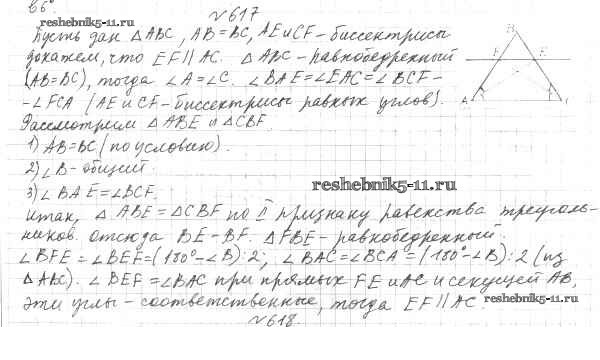 66°.
№617
reshebnik5-11.ru
Пусть дан △ABC, AB=BC, AE и CF - биссектрисы
докажем, что EF∥AC. △ABC - равнобедренный
(AB=BC), тогда ∠A=∠C. ∠BAE=∠EAC=∠BCF-
-∠FCA (AE и CF - биссектрисы равных углов).
Рассмотрим △ABE и △CBF.
1) AB=BC (по условию).
2) ∠B - общий.
3) ∠BAE=∠BCF.
reshebnik5-11.ru
Итак, △ABE=△CBF по II признаку равенства треуголь-
ников. Отсюда BE-BF. △FBE - равнобедренный.
∠BFE=∠BEF=(180°-∠B):2; ∠BAC=∠BCA=(180°-∠B):2 (из
△ABC). ∠BEF=∠BAC при прямых FE и AC и секущей AB,
эти углы - соответственные, тогда EF∥AC.
reshebnik5-11.ru
№618.
B
F E
A C